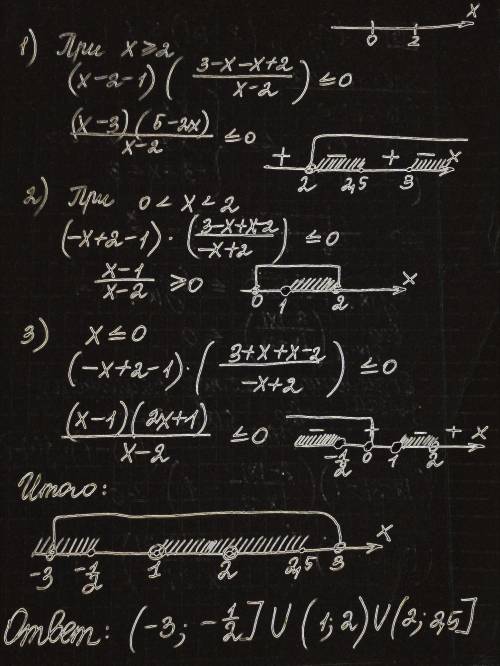 x
0 2
1) При x ≥ 2
(x-2-1) ( \frac{3-x-x+2}{x-2} ) ≤ 0
\frac{(x-3)(5-2x)}{x-2} ≤ 0
+ - + - x
2 2,5 3
2) При 0 < x < 2
(-x+2-1) · ( \frac{3-x+x-2}{-x+2} ) ≤ 0
\frac{x-1}{x-2} ≥ 0
x
0 1 2
3) x ≤ 0
(-x+2-1) · ( \frac{3+x+x-2}{-x+2} ) ≤ 0
\frac{(x-1)(2x+1)}{x-2} ≤ 0
- + - + x
-\frac{1}{2} 0 1 2
Итого:
x
-3 -\frac{1}{2} 1 2 2,5 3
Ответ: (-3; -\frac{1}{2}] U (1; 2) U (2; 2,5]